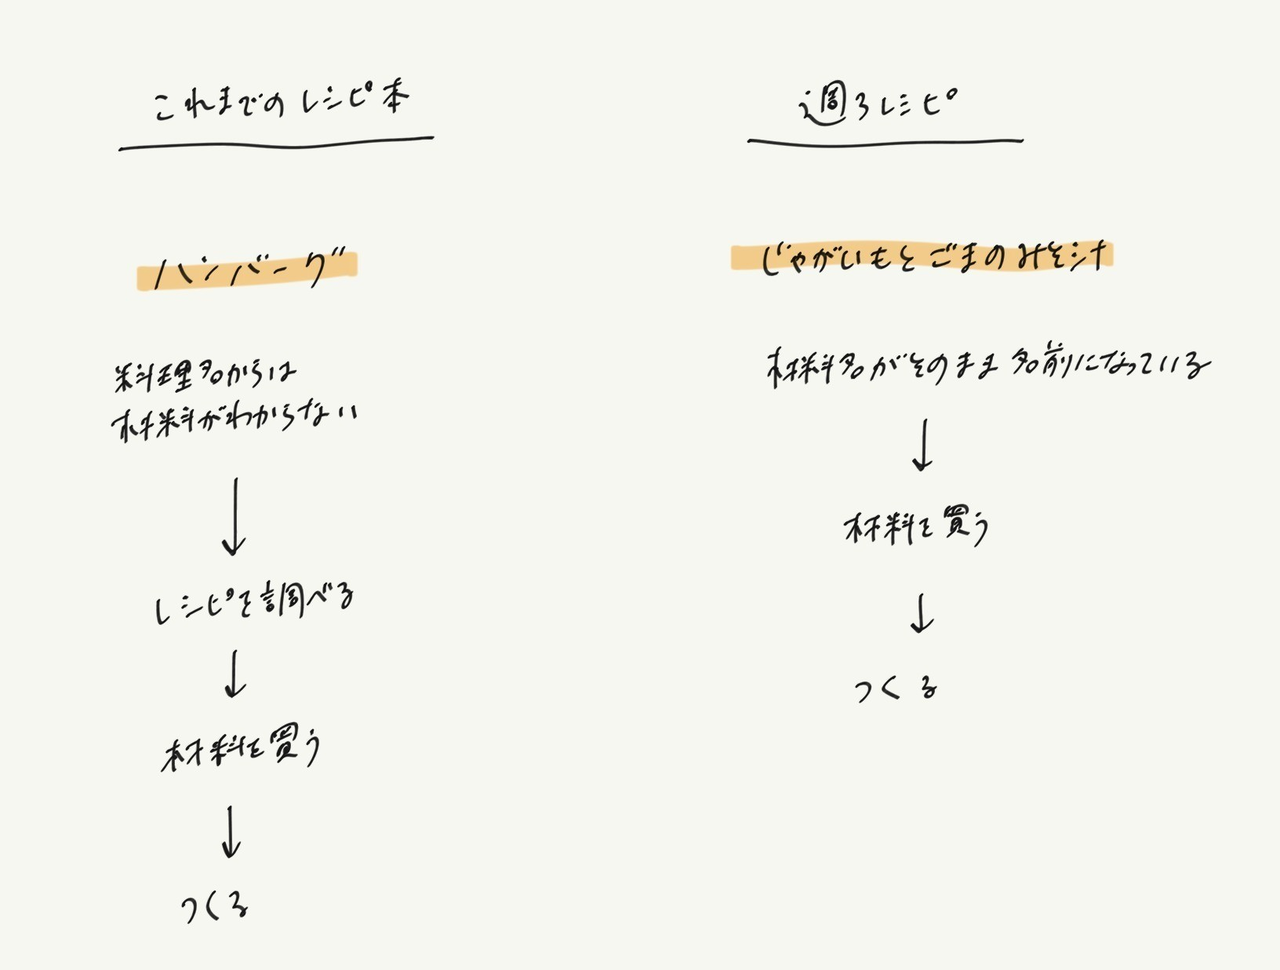 これまでのレシピ本
ハンバーグ
料理名からは
材料がわからない
↓
レシピを調べる
↓
材料を買う
↓
つくる
週3レシピ
じゃがいもとごまのみそ汁
材料名がそのまま名前になっている
↓
材料を買う
↓
つくる